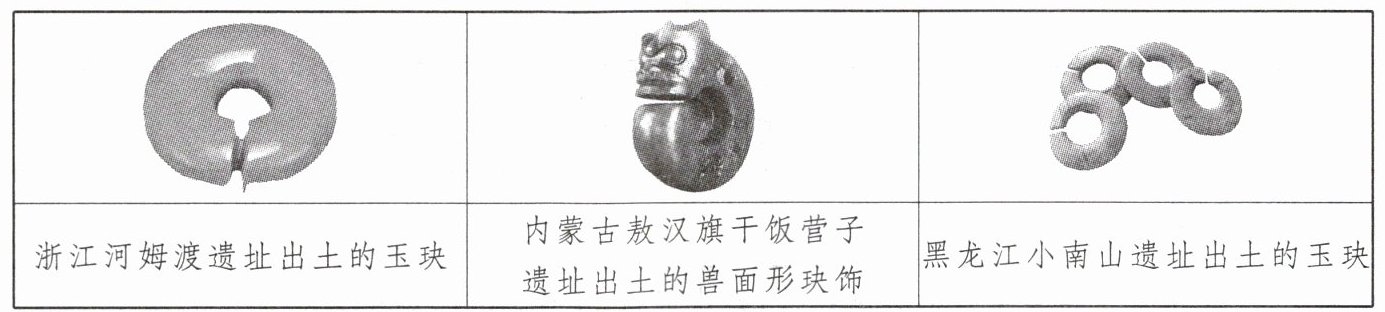 浙江河姆渡遗址出土的玉玦
内蒙古敖汉旗干饭营子
遗址出土的兽面形玦饰
黑龙江小南山遗址出土的玉玦